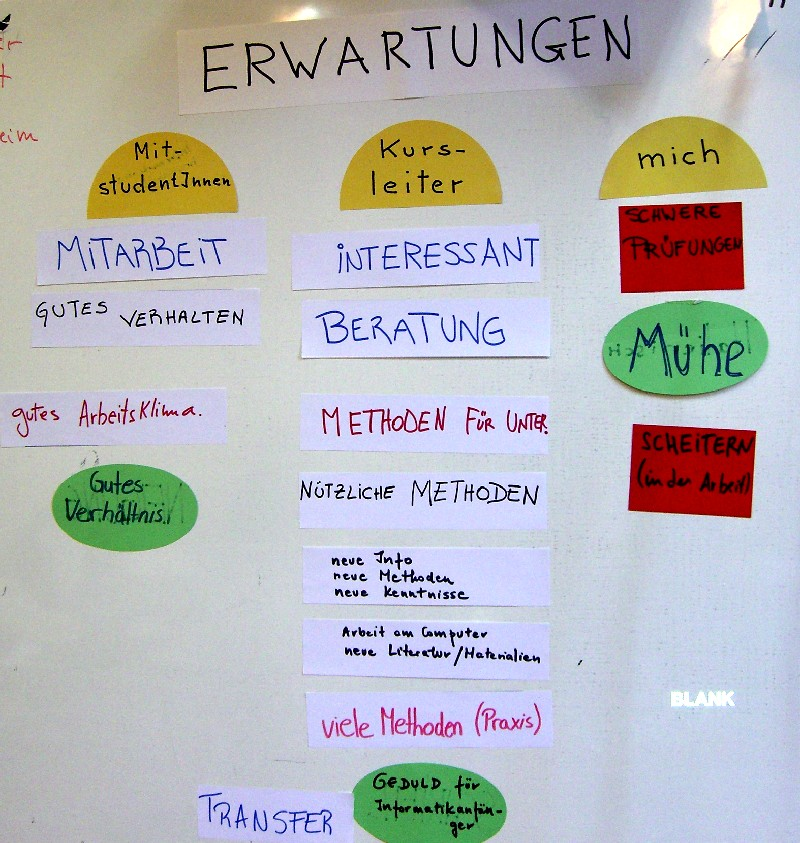 ERWARTUNGEN
eim
Mit-
studentInnen
MITARBEIT
GUTES VERHALTEN
gutes Arbeitsklima.
Gutes
Verhältnis.
Kurs-
leiter
INTERESSANT
BERATUNG
METHODEN FÜR UNTER.
NÜTZLICHE METHODEN
neue Info
neue Methoden
neue Kenntnisse
Arbeit am Computer
neue Literatur/Materialien
viele Methoden (Praxis)
TRANSFER
GEDULD für
Informatikanfän-
ger
mich
SCHWERE
PRÜFUNGEN
Mühe
SCHEITERN
(in der Arbeit)
BLANK